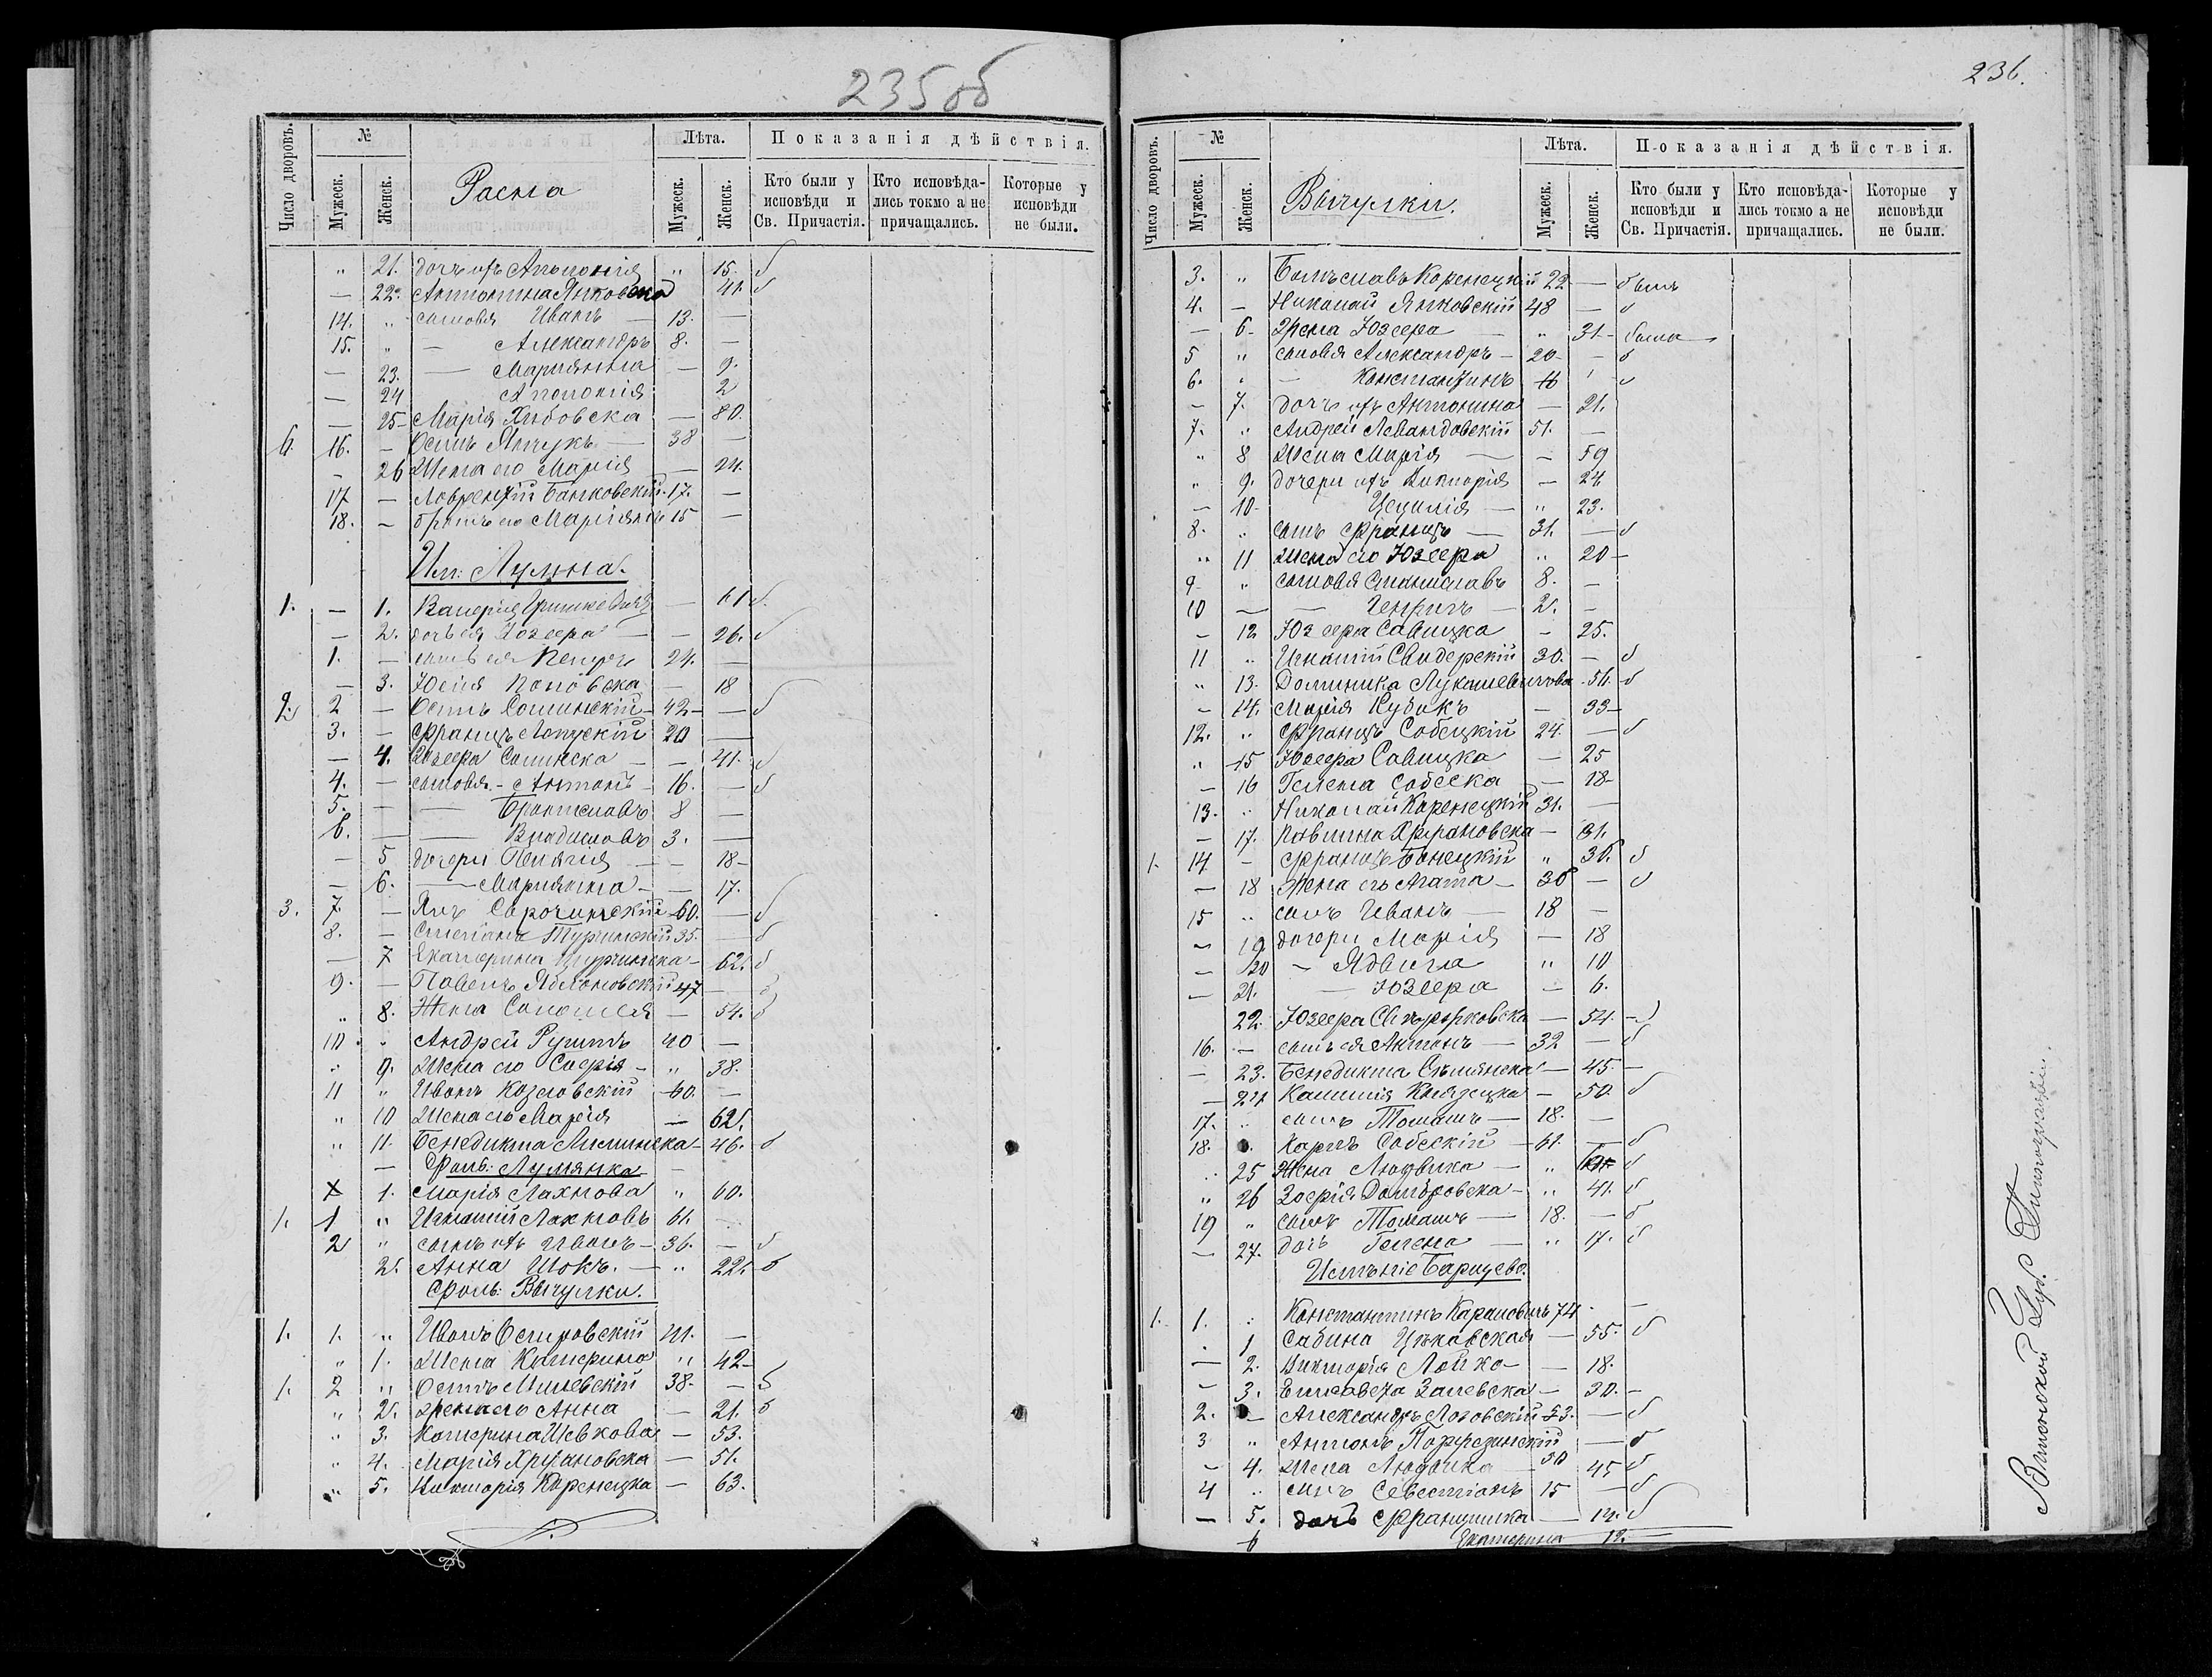 235 об
Число дворовъ. № Лѣта. Показанія дѣйствія.
Мужеск. Женск. Расна Мужеск. Женск. Кто были у исповѣди и Св. Причастія. Кто исповѣда-лись токмо а не причащались. Которые у исповѣди не были.
" 21. дочъ ихъ Апполонія " 15. б
— 22. Антонина Янковска 41 б
14. " сыновя Иванъ — 13. —
15. " — Александръ 8. —
— 23. — Маріянна — 9.
— 24 Аполонія 2
— 25 Марія Хибовска — 80.
6. 16. — Осипъ Янчукъ — 38 —
— 26 Жена его Марія — 24.
17 — Лаврентій Банковскій 17. —
18. — братъ его Маріянъ 15 —
Им: Лумна.
1. — 1. Валерія Гришкевичъ — 61 б.
— 2. дочъ ея Юзефа — — 26. б
1. — сынъ ея Петръ 24. —
— 3. Юлія Поповска — 18
2. 2 — Осипъ Солинскій 42 — б
3. — Францъ Лопускій 20 —
— 4. Юзефа Солинска — — 41. б
4. — сыновя — Антонъ — 16. — б
5. — — Брониславъ 8 —
6. — — Владиславъ 3. —
— 5 дочери Пелагія — — 18 —
— 6. — Маріянна — — 17.
3. 7. — Янъ Сарочинскій 60. — б
8. — Степанъ Туржинскій 35. — б
— 7 Екатерина Туржинска — 62. б
9. — Павелъ Яблоновскій 47 — б
" 8. Жена Саломея — 54. б
10. " Андрей Ручитъ 40 —
" 9. Жена его Софія — " 38.
11 " Иванъ Козловскій 60. —
" 10 Жена его Марія — 62.
" 11. Бенедикта Лисинска — 46. б
— Фоль: Лумянка —
X 1. Марія Лахнова " 60.
1. 1 " Игнатій Лахновъ 61. —
2 " сынъ ихъ Иванъ — 36. — б
2. Анна Шокъ. — " 22. б
Фоль: Вычулки.
1. 1. " Иванъ Островскій 41. —
" 1. Жена Катерина " 42 —
1. 2 " Осипъ Милевскій 38. — б
" 2. жена его Анна — 21. б
" 3. Катерина Шевкова — 53.
" 4. Марія Хржановска — 51.
" 5. Викторія Коренецка — 63.
236.
Число дворовъ. № Лѣта. Показанія дѣйствія.
Мужеск. Женск. Вычулки. Мужеск. Женск. Кто были у исповѣди и Св. Причастія. Кто исповѣда-лись токмо а не причащались. Которые у исповѣди не были.
3. " Болеславъ Коренецкій 22 — былъ
4. — Николай Янковскій 48 — б
— 6 жена Юзефа — " 31 — была
5 " сыновя Александръ — 20 — — б
6. " — Константинъ 16 — б
— 7. дочъ ихъ Антонина — 21.
7. " Андрей Левандовскій 51. —
" 8 Жена Марія — — 59
" 9. дочери ихъ Викторія — 24
— 10 Цецилія — " 23.
8. " сынъ Францъ — 31. — б
" 11 Жена его Юзефа " 20 —
9 " сыновя Станиславъ 8. —
10 — — Генрихъ — 2. —
— 12 Юзефа Савицка — 25.
11 " Игнатій Свидерскій 30. — б
" 13. Доминика Лукашевичова 56. б
— 14. Марія Кубикъ — 33 —
12. " Францъ Собецкій 24. — б
" 15 Юзефа Савицка — 25
— 16 Гелена Собеска — 18 —
13. " Николай Коренецкій 31. —
— 17. Павлина Хржановска — 61.
1. 14 — Францъ Банецкій " 36. б
— 18 жена его Агата — 30 — б
15 " сынъ Иванъ — 18 —
— 19 дочери Марія — 18
— 20 — Ядвига " 10
— 21. — Юзефа — 6.
22. Юзефа Сикорковска — 54. —
16. — сынъ ея Антонъ — 32 — б
— 23. Бенедикта — 45. —
— 24 — 50. б
17. " сынъ Томашъ — 18. —
18. Карлъ Собескій — 61. — б
" 25 Жена Людвика — " б
" 26 Зофія Домбровска — " 41. б
19 " сынъ Томашъ — 18. — б
— 27. дочъ Гелена — " 17. б
Имѣніе Барцево.
1. 1. " Константинъ Каралович 74 —
" 1 Сабина Цѣковская — 55. б
— 2. Викторія Лойко — — 18.
— 3. Елисавета Залевска — 30. —
2. — Александръ Логовскій 53. — б
3 " Антонъ — б
— 4. Жена Людвика 30 45 б
4 " сынъ Севестіанъ 15 — б
— 5. дочъ Францишка — 14. б
6 Екатерина 12. —
Витебской Губ. Типографіи.